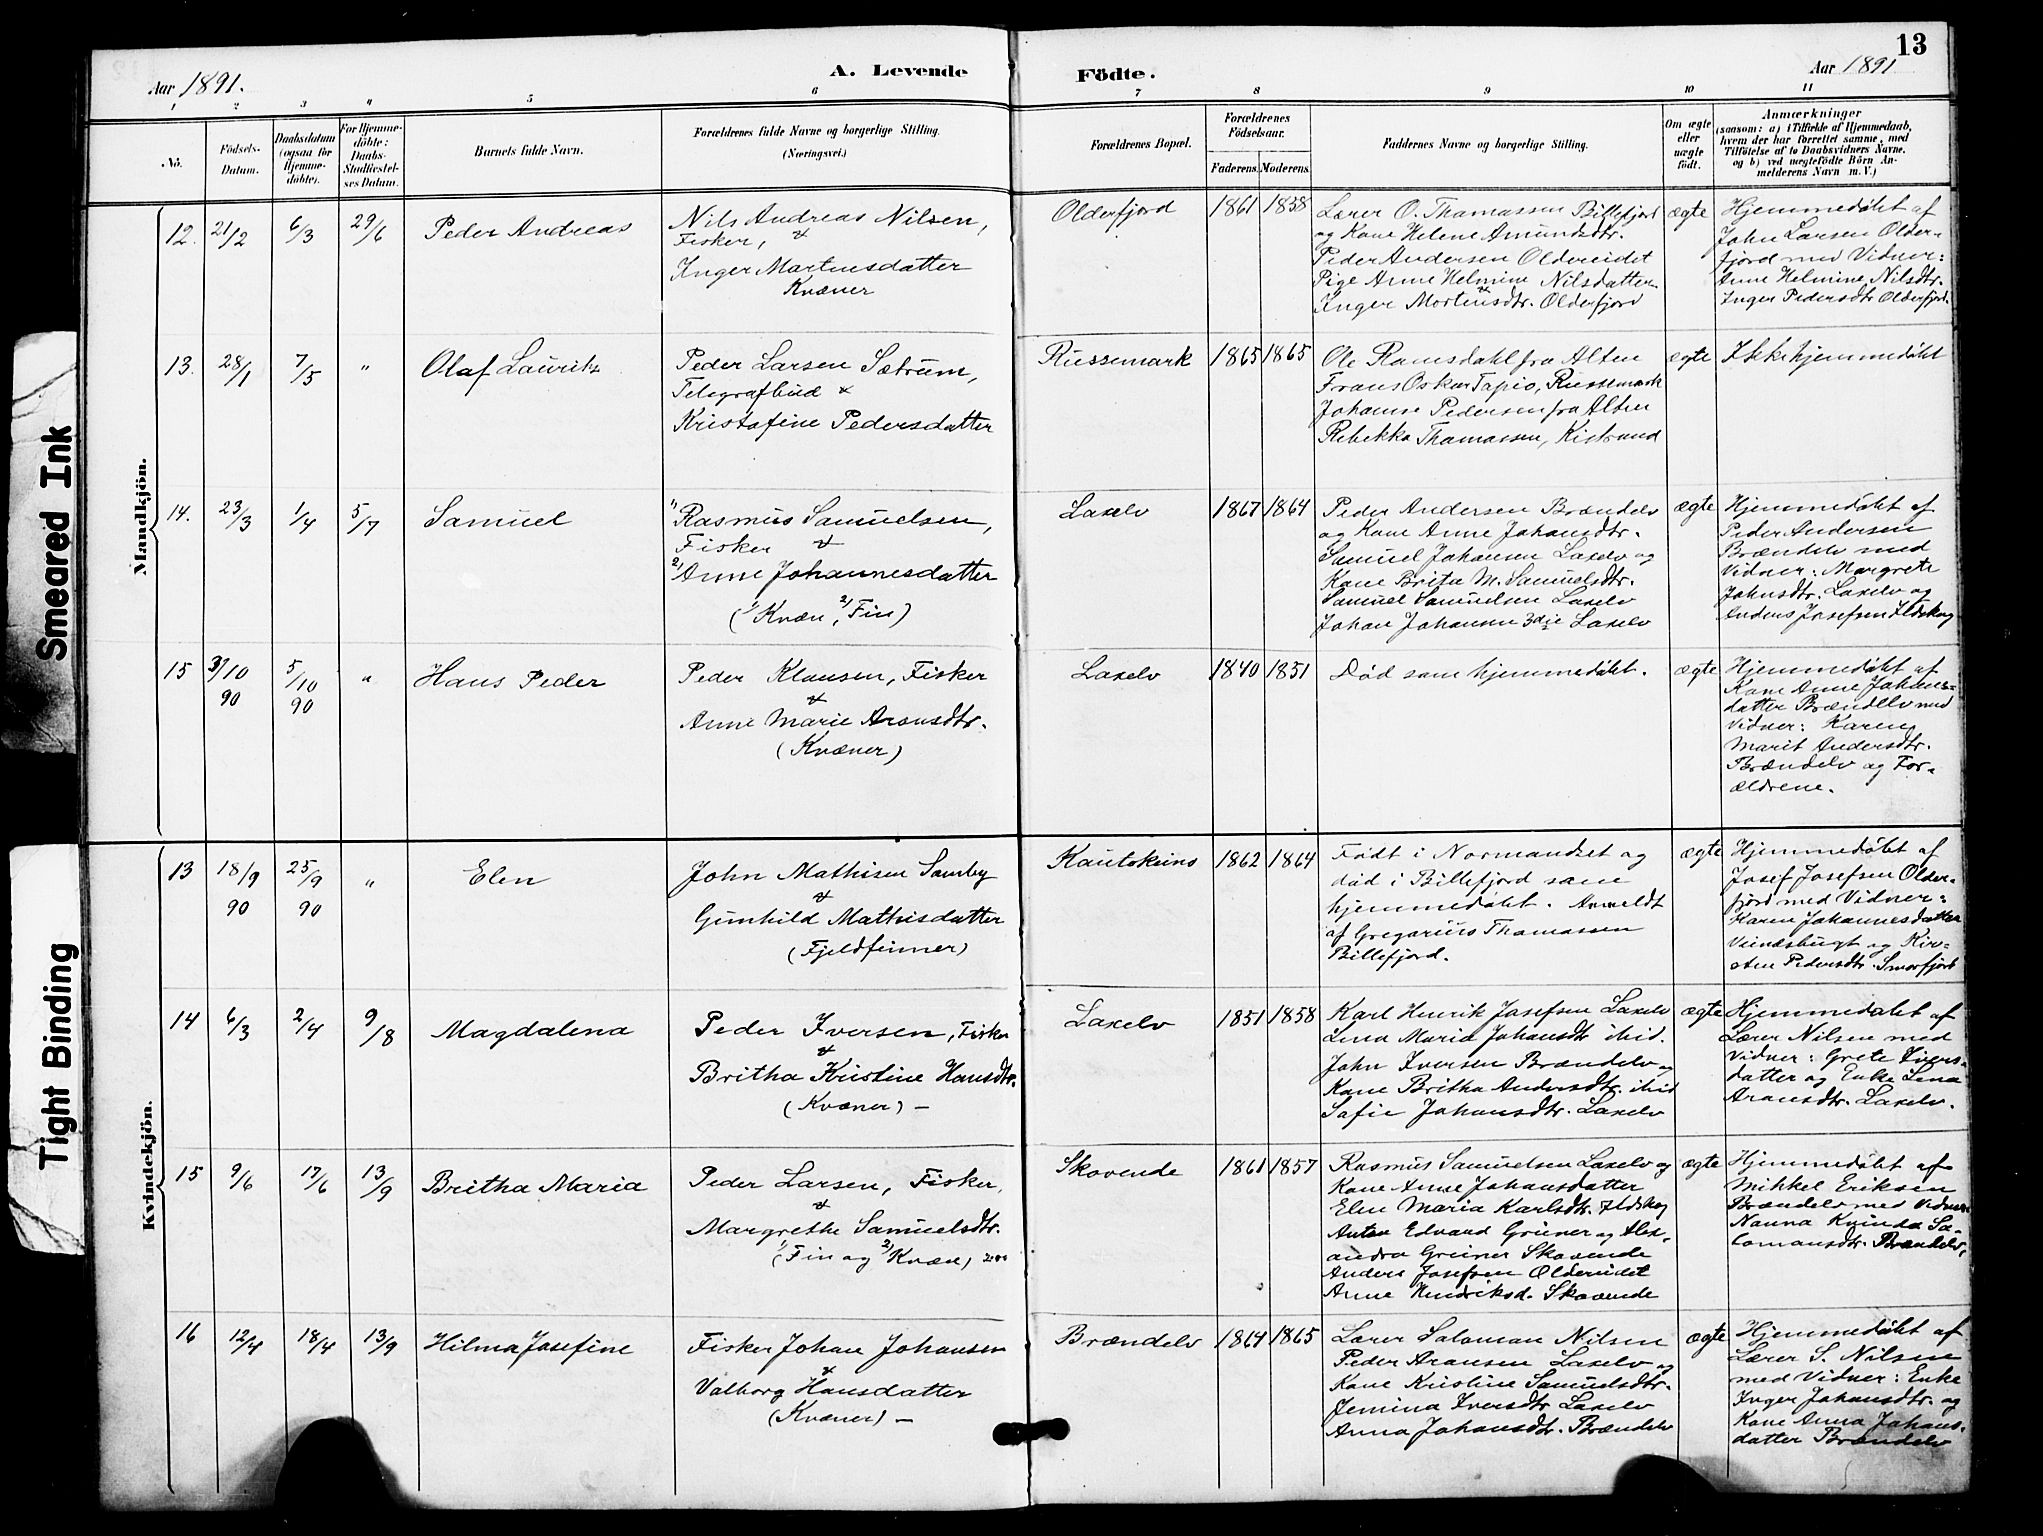 13
Aar 1891.
A. Levende
Födte.
Aar 1891
1 2 3 4 5 6 7 8 9 10 11
No.
Födsels-
Datum.
Daabsdatum
(ogsaa for
Hjemme-
döbte).
For Hjemme-
döbte:
Daabs-
Stadfæstel-
ses Datum.
Barnets fulde Navn.
Forældrenes fulde Navne og borgerlige Stilling.
(Næringsvei.)
Forældrenes Bopæl.
Forældrenes
Födselsaar.
Faderens.
Moderens.
Faddernes Navne og borgerlige Stilling.
Om ægte
eller
uægte
födt.
Anmærkninger
(saasom: a) i Tilfælde af Hjemmedaab,
hvem der har forrettet samme, med
Tilföielse af to Daabsvidners Navne,
og b) ved uegtefödte Börn An-
melderens Navn m. V.)
Mandkjön.
12. 21/2 6/3 29/6 Peder Andreas
Nils Andreas Nilsen,
Fisker, &
Inger Martinsdatter
Kvæner
Olderfjord 1861 1858
Lærer O. Thomassen Billefjord
og Kone Helene Amundsdtr.
Peder Andersen Oldereidet
Pige Anne Helmine Nilsdatter
Inger Mortensdtr. Olderfjord
ægte
Hjemmedøbt af
John Larsen Older-
fjord med Vidner:
Anne Helmine Nilsdtr.
Inger Pedersdtr Olderfjord.
13. 28/1 7/5 " Olaf Lauritz
Peder Larsen Sætrum,
Telegrafbud &
Kristofine Pedersdatter
Russemark 1865 1865
Ole Ramsdahl fra Alten
Frans Oskar Tapio, Russemark
Johanne Pedersen fra Alten
Rebekka Thomassen, Kistrand
ægte
Ikke hjemmedøbt
14. 23/3 1/4 5/7 Samuel
1) Rasmus Samuelsen,
Fisker &
2) Anne Johannesdatter
(1) Kvæn, 2) Fin)
Laxelv 1867 1864
Peder Andersen Brændelv
og Kone Anne Johansdtr.
Samuel Johansen Laxelv og
Kone Brita M. Samuelsdtr.
Samuel Samuelsen Laxelv
Johan Johansen 3die Laxelv
ægte
Hjemmedøbt af
Peder Andersen
Brændelv med
Vidner: Margrete
Johnsdtr. Laxelv og
Anders Josefsen Ildskog
15 3/10 90 5/10 90 " Hans Peder
Peder Klausen, Fisker
&
Anne Marie Aronsdtr.
(Kvæner)
Laxelv 1840 1851
Død som hjemmedøbt.
ægte
Hjemmedøbt af
Kone Anne Johans-
datter Brændelv med
Vidner: Karen
Marit Andersdtr.
Brændelv og For-
ældrene.
Kvindekjön.
13 18/9 90 25/9 90 " Elen
John Mathisen Somby
&
Gunhild Mathisdatter
(Fjeldfinner)
Kautokeino 1862 1864
Født i Normandset og
død i Billefjord som
hjemmedøbt. Anmeldt
af Gregorius Thomassen
Billefjord.
ægte
Hjemmedøbt af
Josef Josefsen Older-
fjord med Vidner:
Karen Johannesdatter
og Kir-
sten Pedersdtr. Smørfjord
14 6/3 2/4 9/8 Magdalena
Peder Iversen, Fisker
&
Britha Kristine Hansdtr.
(Kvæner) -
Laxelv 1851 1858
Karl Henrik Josefsen Laxelv
Lina Maria Johansdtr ibid.
John Iversen Brændelv og
Kone Britha Andersdtr. ibid
Sofie Johansdtr. Laxelv
ægte
Hjemmedøbt af
Lærer Nilsen med
Vidner: Grete Ivers-
datter og Enke Lena
Aronsdtr. Laxelv.
15 9/6 17/6 13/9 Britha Maria
Peder Larsen, Fisker,
&
Margrethe Samuelsdtr.
(1) Fin og 2) Kvæn)
Skovende 1861 1857
Rasmus Samuelsen Laxelv og
Kone Anne Johansdatter
Elen Maria Karlsdtr. Ildskog
Anton Edvard Grüner og Alex-
andra Grüner Skovende
Anders Josefsen Oldereidet
Anne Hendriksd. Skovende
ægte
Hjemmedøbt af
Mikkel Eriksen
Brændelv med Vidner
Nanna Kvinda Sa-
lomonsdtr. Brændelv,
16 12/4 18/4 13/9 Hilma Josefine
Fisker Johan Johansen
&
Valborg Hansdatter
(Kvæner) -
Brændelv 1864 1865
Lærer Salomon Nilsen
Peder Aronsen Laxelv og
Kone Kristine Samuelsdtr.
Jemina Iversdtr Laxelv
Anna Johansdtr. Brændelv
ægte
Hjemmedøbt af
Lærer S. Nilsen
med Vidner: Enke
Inger Johansdtr. og
Kone Anna Johans-
datter Brændelv
Smeared Ink
Tight Binding